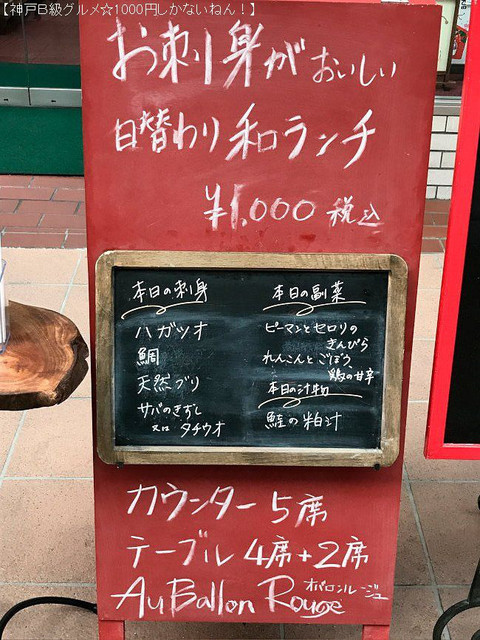 【神戸B級グルメ☆1000円しかないねん!】
お刺身がおいしい
日替わり和ランチ
¥1,000 税込
本日の刺身
ハガツオ
鯛
天然ブリ
サバのきずし
又は タチウオ
本日の副菜
ピーマンとセロリの
きんぴら
れんこんとごぼう
鶏の甘辛
本日の汁物
鮭の粕汁
カウンター 5席
テーブル 4席+2席
Au Ballon Rouge オバロンルージュ